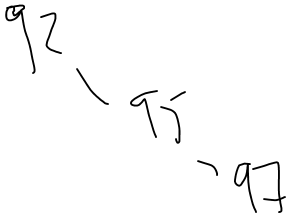 92、95、97